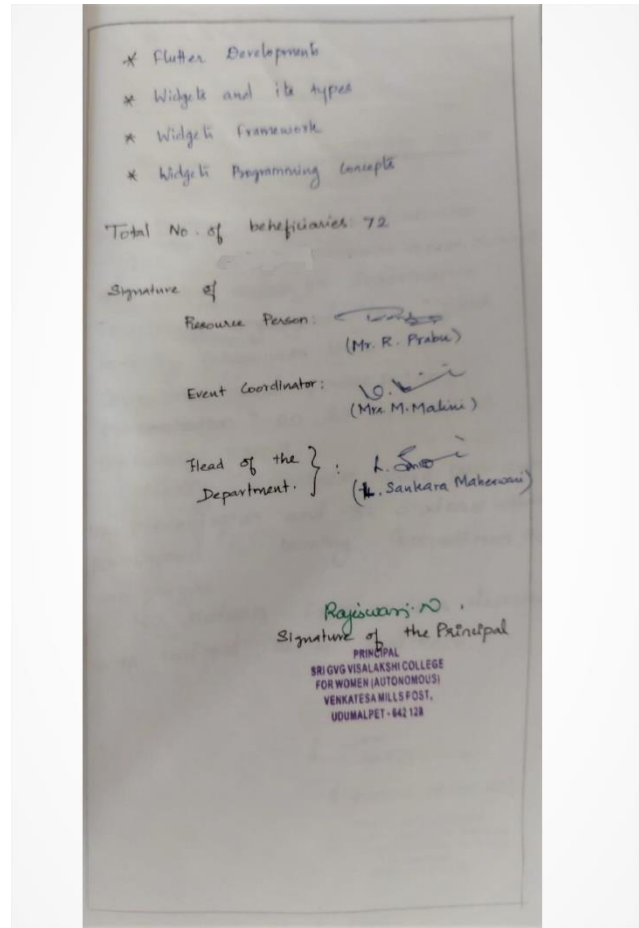 * Flutter Development
* Widgets and its types
* Widgets Framework
* Widgets Programming Concepts
Total No. of beneficiaries: 72
Signature of
Resource Person:
(Mr. R. Prabu)
Event Coordinator:
(Mrs. M. Malini)
Head of the
Department. } :
(L. Sankara Maheswari)
Rajeswari. N.
Signature of the Principal
PRINCIPAL
SRI GVG VISALAKSHI COLLEGE
FOR WOMEN (AUTONOMOUS)
VENKATESA MILLS POST,
UDUMALPET - 642 128